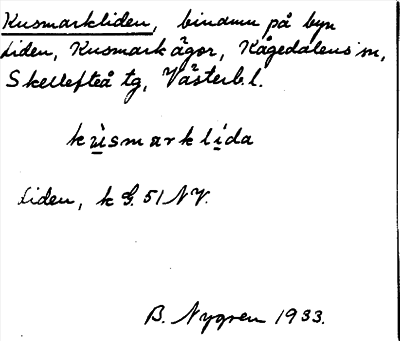 Kusmarkliden, binamn på byn
Liden, Kusmark ägor, Kågedalens sn,
Skellefteå tg, Västerb.l.
kùsmarklída
Liden, k G. 51 NV.
B. Nygren 1933.